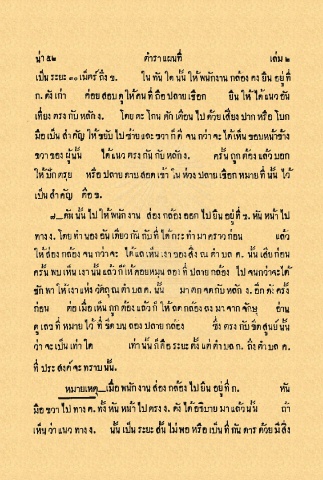 น่า ๕๒ ตำราแผนที่ เล่ม ๒
เป็นระยะ ๓๐ เมีตร์ถึง ข. ในทันใดนั้น ให้พนักงานกล้องคงยืนอยู่ที่
ก. ดังเก่า ค่อยสอบดูให้คนที่ถือปลายเชือก ยืนให้ได้แนวอัน
เที่ยงตรงกับหลัก ง. โดยตะโกนตักเตือนไปด้วยเสียงปากหรือโบก
มือเป็นสำคัญ ให้ขยับไปซ้ายและขวาก็ดี จนกว่าจะได้เห็นขอบหน้าข้าง
ขวาของผู้นั้น ได้แนวตรงกันกับหลัก ง. ครั้นถูกต้องแล้วบอก
ให้ปักตรุย หรือปลายดาบสอดเข้าในห่วงปลายเชือกหมายที่นั้นไว้
เป็นสำคัญ คือ ข.
๘_ดันนั้นไปให้พนักงาน ส่องกล้องออกไปยืนอยู่ที่ ข. หันหน้าไป
ทาง ง. โดยทำนองอันเดียวกันกับที่ได้กระทำมาคราวก่อน แล้ว
ให้ส่องกล้องจนกว่าจะ ได้แลเห็นเงาของสิ่งณตำบล ด. นั้นเสียก่อน
ครั้นพบเห็นเงานั้นแล้วก็ให้ค่อยหมุนลอที่ปลายกล้อง ไปจนกว่าจะได้
ชักพาให้เงาแห่งวัตถุณตำบล ด. นั้น มาตกจดกับหลัก ง. อีกดังครั้ง
ก่อน ต่อเมื่อเห็นถูกต้องแล้วก็ให้ลดกล้องลงมาจากจักษุ อ่าน
ดูเลขที่หมายไว้ที่ขีดบนลอปลายกล้อง ซึ่งตรงกับขีดสูนย์นั้น
ว่าจะเป็นเท่าใด เท่านั้นก็คือระยะตั้งแต่ตำบล ก. ถึงตำบล ด.
ที่ประสงค์จะทราบนั้น.
หมายเหตุ_เมื่อพนักงานส่องกล้องไปยืนอยู่ที่ ก. หัน
มือขวาไปทาง ด. ทั้งหันหน้าไปตรง ง. ดังได้อธิบายมาแล้วนั้น ถ้า
เห็นว่าแนวทาง ง. นั้นเป็นระยะสั้นไม่พอหรือเป็นที่กันดารด้วยมีสิ่ง